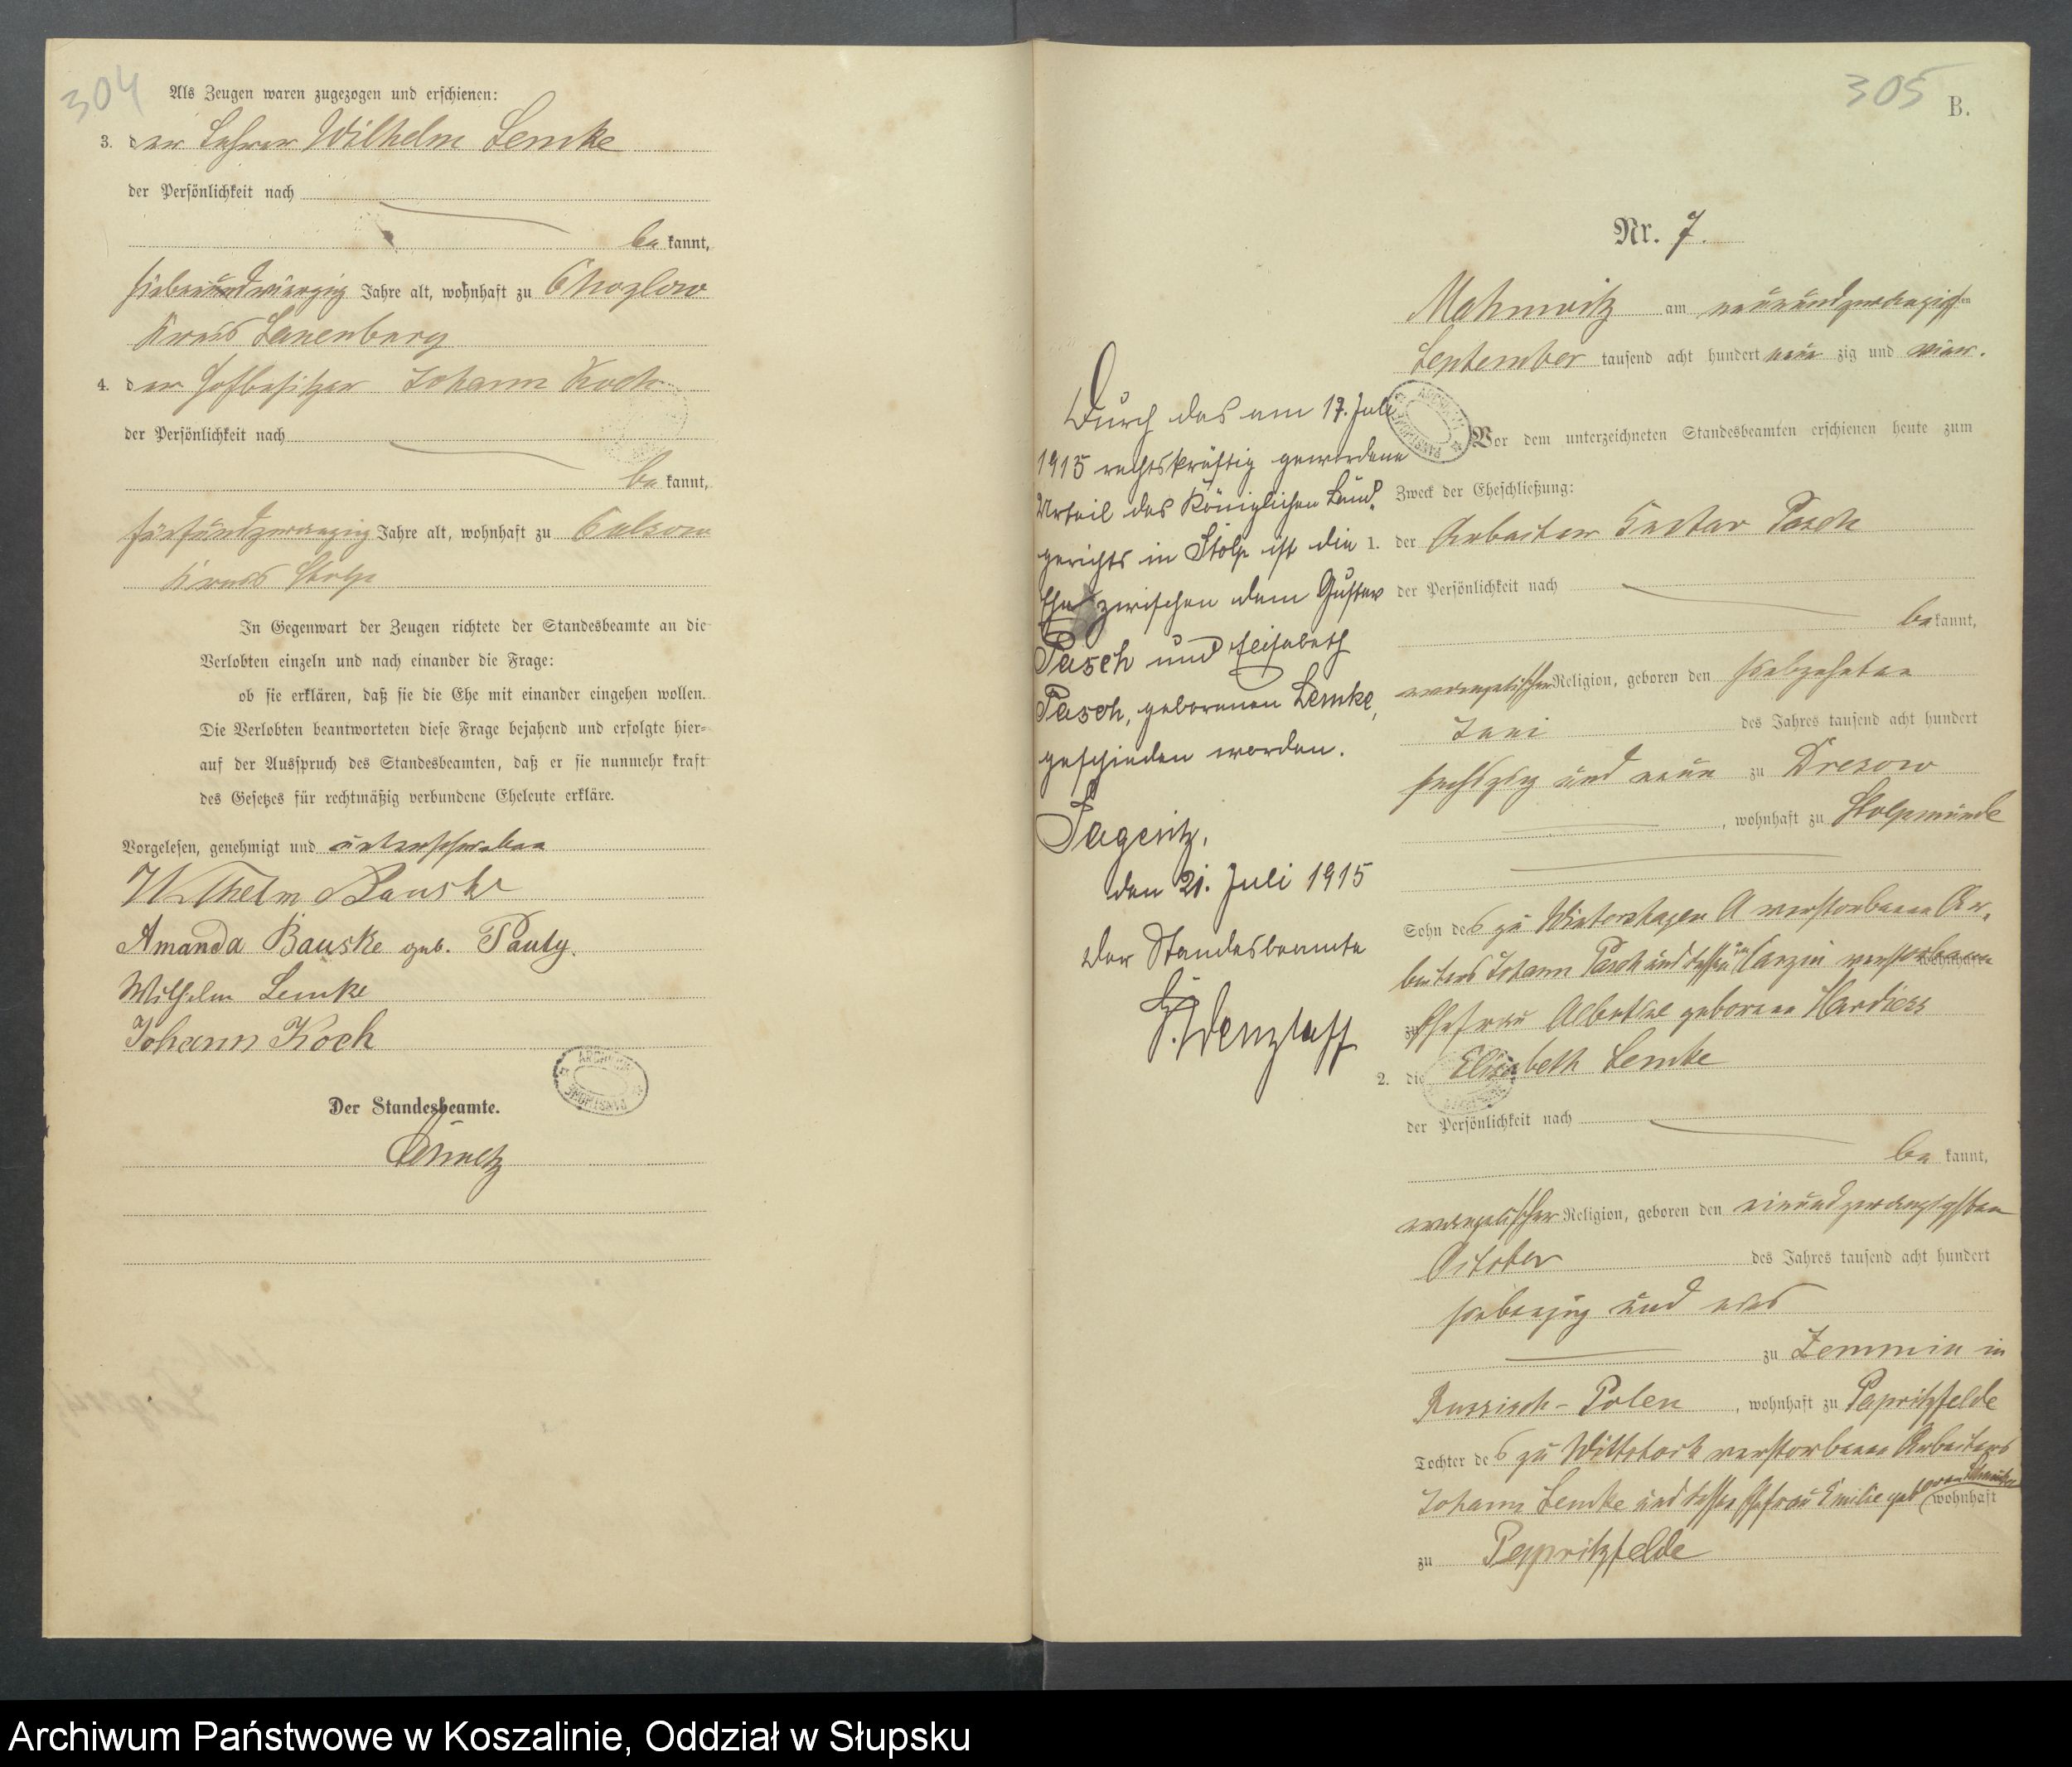 304
Als Zeugen waren zugezogen und erschienen:
3. der Lehrer Wilhelm Lemke
der Persönlichkeit nach
be kannt,
siebenundvierzig Jahre alt, wohnhaft zu Chozlow
Kreis Lauenburg
4. der Hofbesitzer Johann Koch
der Persönlichkeit nach
be kannt,
fünfundzwanzig Jahre alt, wohnhaft zu Culsow
Kreis Stolp
In Gegenwart der Zeugen richtete der Standesbeamte an die
Verlobten einzeln und nach einander die Frage:
ob sie erklären, daß sie die Ehe mit einander eingehen wollen.
Die Verlobten beantworteten diese Frage bejahend und erfolgte hier-
auf der Ausspruch des Standesbeamten, daß er sie nunmehr kraft
des Gesetzes für rechtmäßig verbundene Eheleute erkläre.
Vorgelesen, genehmigt und unterschrieben
Wilhelm Bauske
Amanda Bauske geb. Pauly.
Wilhelm Lemke
Johann Koch
Der Standesbeamte.
305
B.
Nr. 7.
Mahnwitz am neunundzwanzigsten
September tausend acht hundert neun zig und vier.
Vor dem unterzeichneten Standesbeamten erschienen heute zum
Zweck der Eheschließung:
1. der Arbeiter Gustav Pasch
der Persönlichkeit nach
be kannt,
evangelischer Religion, geboren den siebzehnten
Juni des Jahres tausend acht hundert
sechszig und neun zu Dresow
, wohnhaft zu Stolpmünde
Sohn des zu Wintershagen A verstorbenen Ar-
beiters Johann Pasch und dessen in Canzin verstorbenen
wohnhaft
zu Ehefrau Albertine geborene
2. die Elisabeth Lemke
der Persönlichkeit nach
be kannt,
evangelischer Religion, geboren den einundzwanzigsten
October des Jahres tausend acht hundert
siebenzig und eins
zu Zemmin in
Russisch-Polen , wohnhaft zu Pepritzfelde
Tochter des zu Wittstock verstorbenen Arbeiters
Johann Lemke und dessen Ehefrau Emilie geborenen
wohnhaft
zu Peppritzfelde
Durch das am 17. Juli
1915 rechtskräftig gewordene
Urteil des Königlichen Land-
gerichts in Stolp ist die
Ehe zwischen dem Gustav
Pasch und Elisabeth
Pasch, geborenen Lemke,
geschieden worden.
den 21. Juli 1915
Der Standesbeamte
Wenzlaff
Archiwum Państwowe w Koszalinie, Oddział w Słupsku